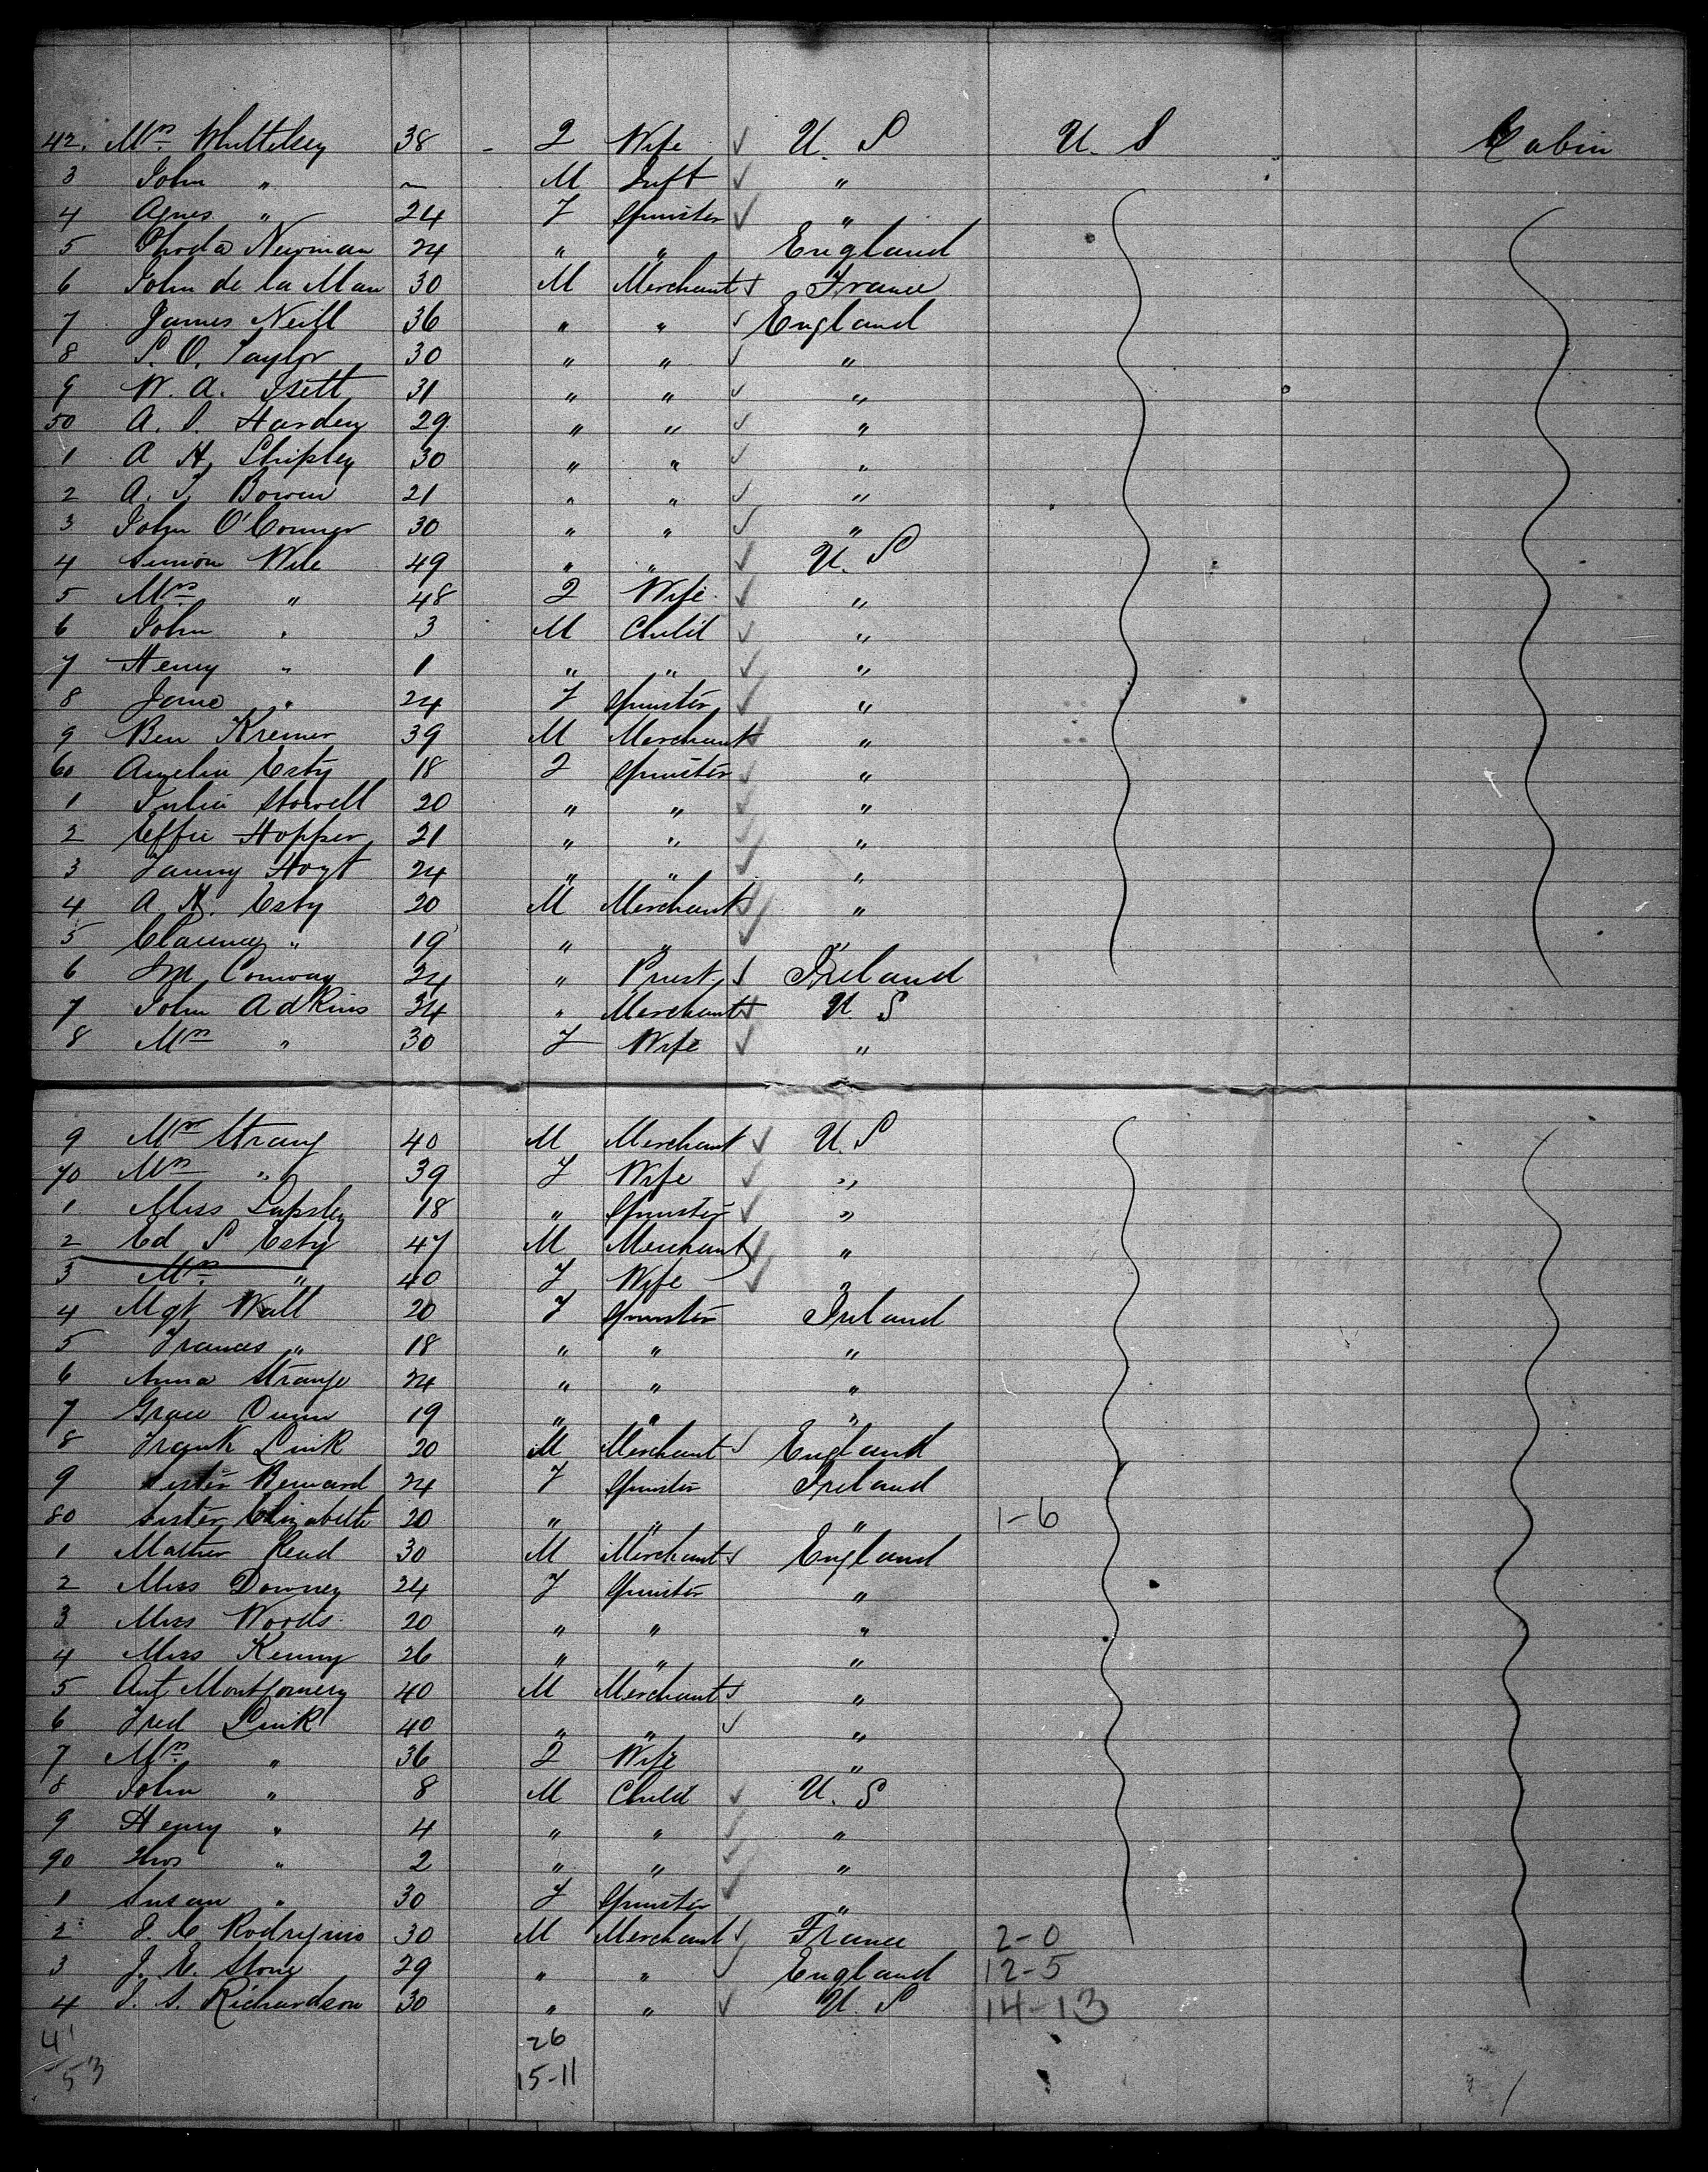 42. Mrs Whittelsey 38 - F Wife ✓ U. S U. S Cabin
3 John " ~ M Inft ✓ "
4 Agnes " 24 F Spinster ✓ "
5 Rhoda Newman 24 " " England
6 John de la Mar 30 M Merchant ✓ France
7 James Neill 36 " " ✓ England
8 S. O. Taylor 30 " " ✓ "
9 W. A. Isett 31 " " ✓ "
50 A. S. Harden 29 " " ✓ "
1 A H. Shipley 30 " " ✓ "
2 A. T. Bowen 21 " " ✓ "
3 John O'Connor 30 " " ✓ "
4 Simon Wile 49 " " ✓ U. S
5 Mrs " 48 F Wife ✓ "
6 John " 3 M Child ✓ "
7 Henry " 1 " " ✓ "
8 Jane " 24 F Spinster ✓ "
9 Ben Kremer 39 M Merchant ✓ "
60 Amelia Esty 18 F Spinster ✓ "
1 Julia Stowell 20 " " ✓ "
2 Effie Hopper 21 " " ✓ "
3 Fanny Hoyt 24 " " ✓ "
4 A. N. Esty 20 M Merchant ✓ "
5 Clarence " 19 " " ✓ "
6 Conway 24 " Priest ✓ Ireland
7 John Adkins 34 " Merchant ✓ U. S
8 Mrs " 30 F Wife ✓ "
9 Mr Strang 40 M Merchant ✓ U. S
70 Mrs " 39 F Wife ✓ "
1 Miss Lapsley 18 " Spinster ✓ "
2 Ed S Esty 47 M Merchant ✓ "
3 Mrs " 40 F Wife ✓
4 Mgt Wall 20 F Spinster Ireland
5 Frances " 18 " " "
6 Anna Strange 24 " " "
7 Grace Dunn 19 " " "
8 Frank Link 20 M Merchant ✓ England
9 Sister Bernard 24 F Spinster Ireland
80 Sister Elizabeth 20 " " " 1-6
1 Mather Read 30 M Merchant ✓ England
2 Miss Downey 24 F Spinster "
3 Miss Woods 20 " " "
4 Miss Kenny 26 " " "
5 Ant Montgomery 40 M Merchant ✓ "
6 Fred Link 40 " " ✓ "
7 Mrs " 36 F Wife "
8 John " 8 M Child ✓ U. S
9 Henry " 4 " " ✓ "
90 Thos " 2 " " ✓ "
1 Susan " 30 F Spinster ✓ "
2 Rodriguis 30 M Merchant ✓ France 2-0
3 J. E. Stone 29 " " ✓ England 12-5
4 J. S. Richardson 30 " " ✓ U. S 14-13
41 26
53 15-11